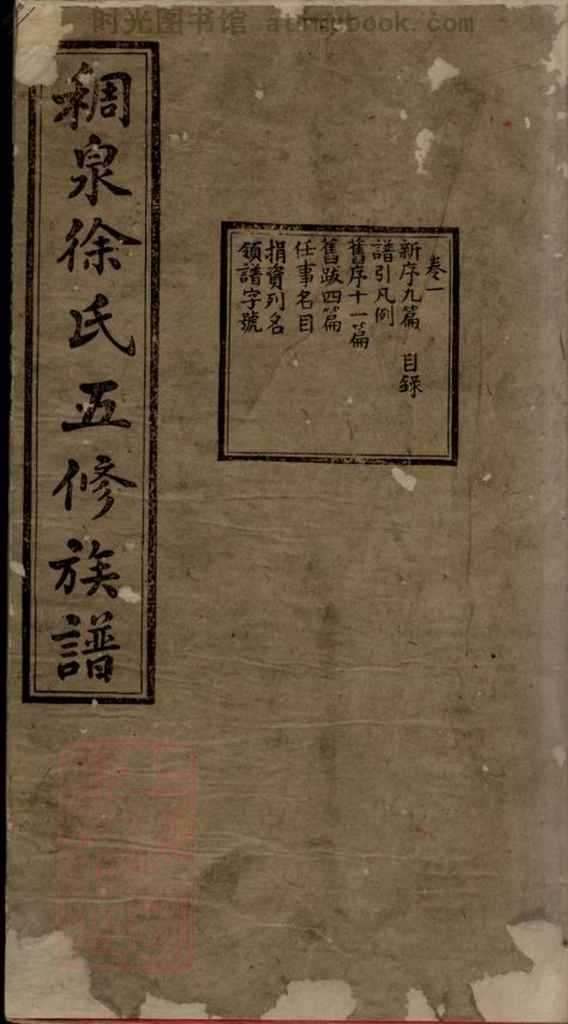 时光图书馆 atmybook.com
稠泉徐氏五修族譜
卷一
新序九篇 目錄
譜引凡例
舊序十一篇
舊跋四篇
任事名目
捐資列名
領譜字號